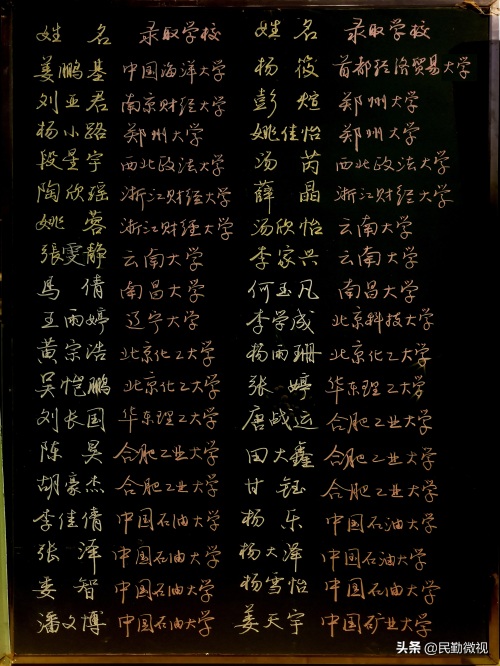 姓名 录取学校 姓名 录取学校
姜鹏基 中国海洋大学 杨筱 首都经济贸易大学
刘亚君 南京财经大学 彭煊 郑州大学
杨小路 郑州大学 姚佳怡 郑州大学
段星宇 西北政法大学 汤芮 西北政法大学
陶欣瑶 浙江财经大学 薛晶 浙江财经大学
姚蓉 浙江财经大学 汤欣怡 云南大学
張雯静 云南大学 李家兴 云南大学
馬倩 南昌大学 何玉凡 南昌大学
王雨婷 辽宁大学 李学成 北京科技大学
黄宗浩 北京化工大学 杨雨珊 北京化工大学
吴恺鹏 北京化工大学 张婷 华东理工大学
刘长国 华东理工大学 唐战运 合肥工业大学
陈昊 合肥工业大学 田大鑫 合肥工业大学
胡豪杰 合肥工业大学 甘钰 合肥工业大学
李佳倩 中国石油大学 杨乐 中国石油大学
张泽 中国石油大学 杨大泽 中国石油大学
娄智 中国石油大学 杨雪怡 中国石油大学
潘文博 中国石油大学 姜天宇 中国矿业大学
头条 @民勤微视